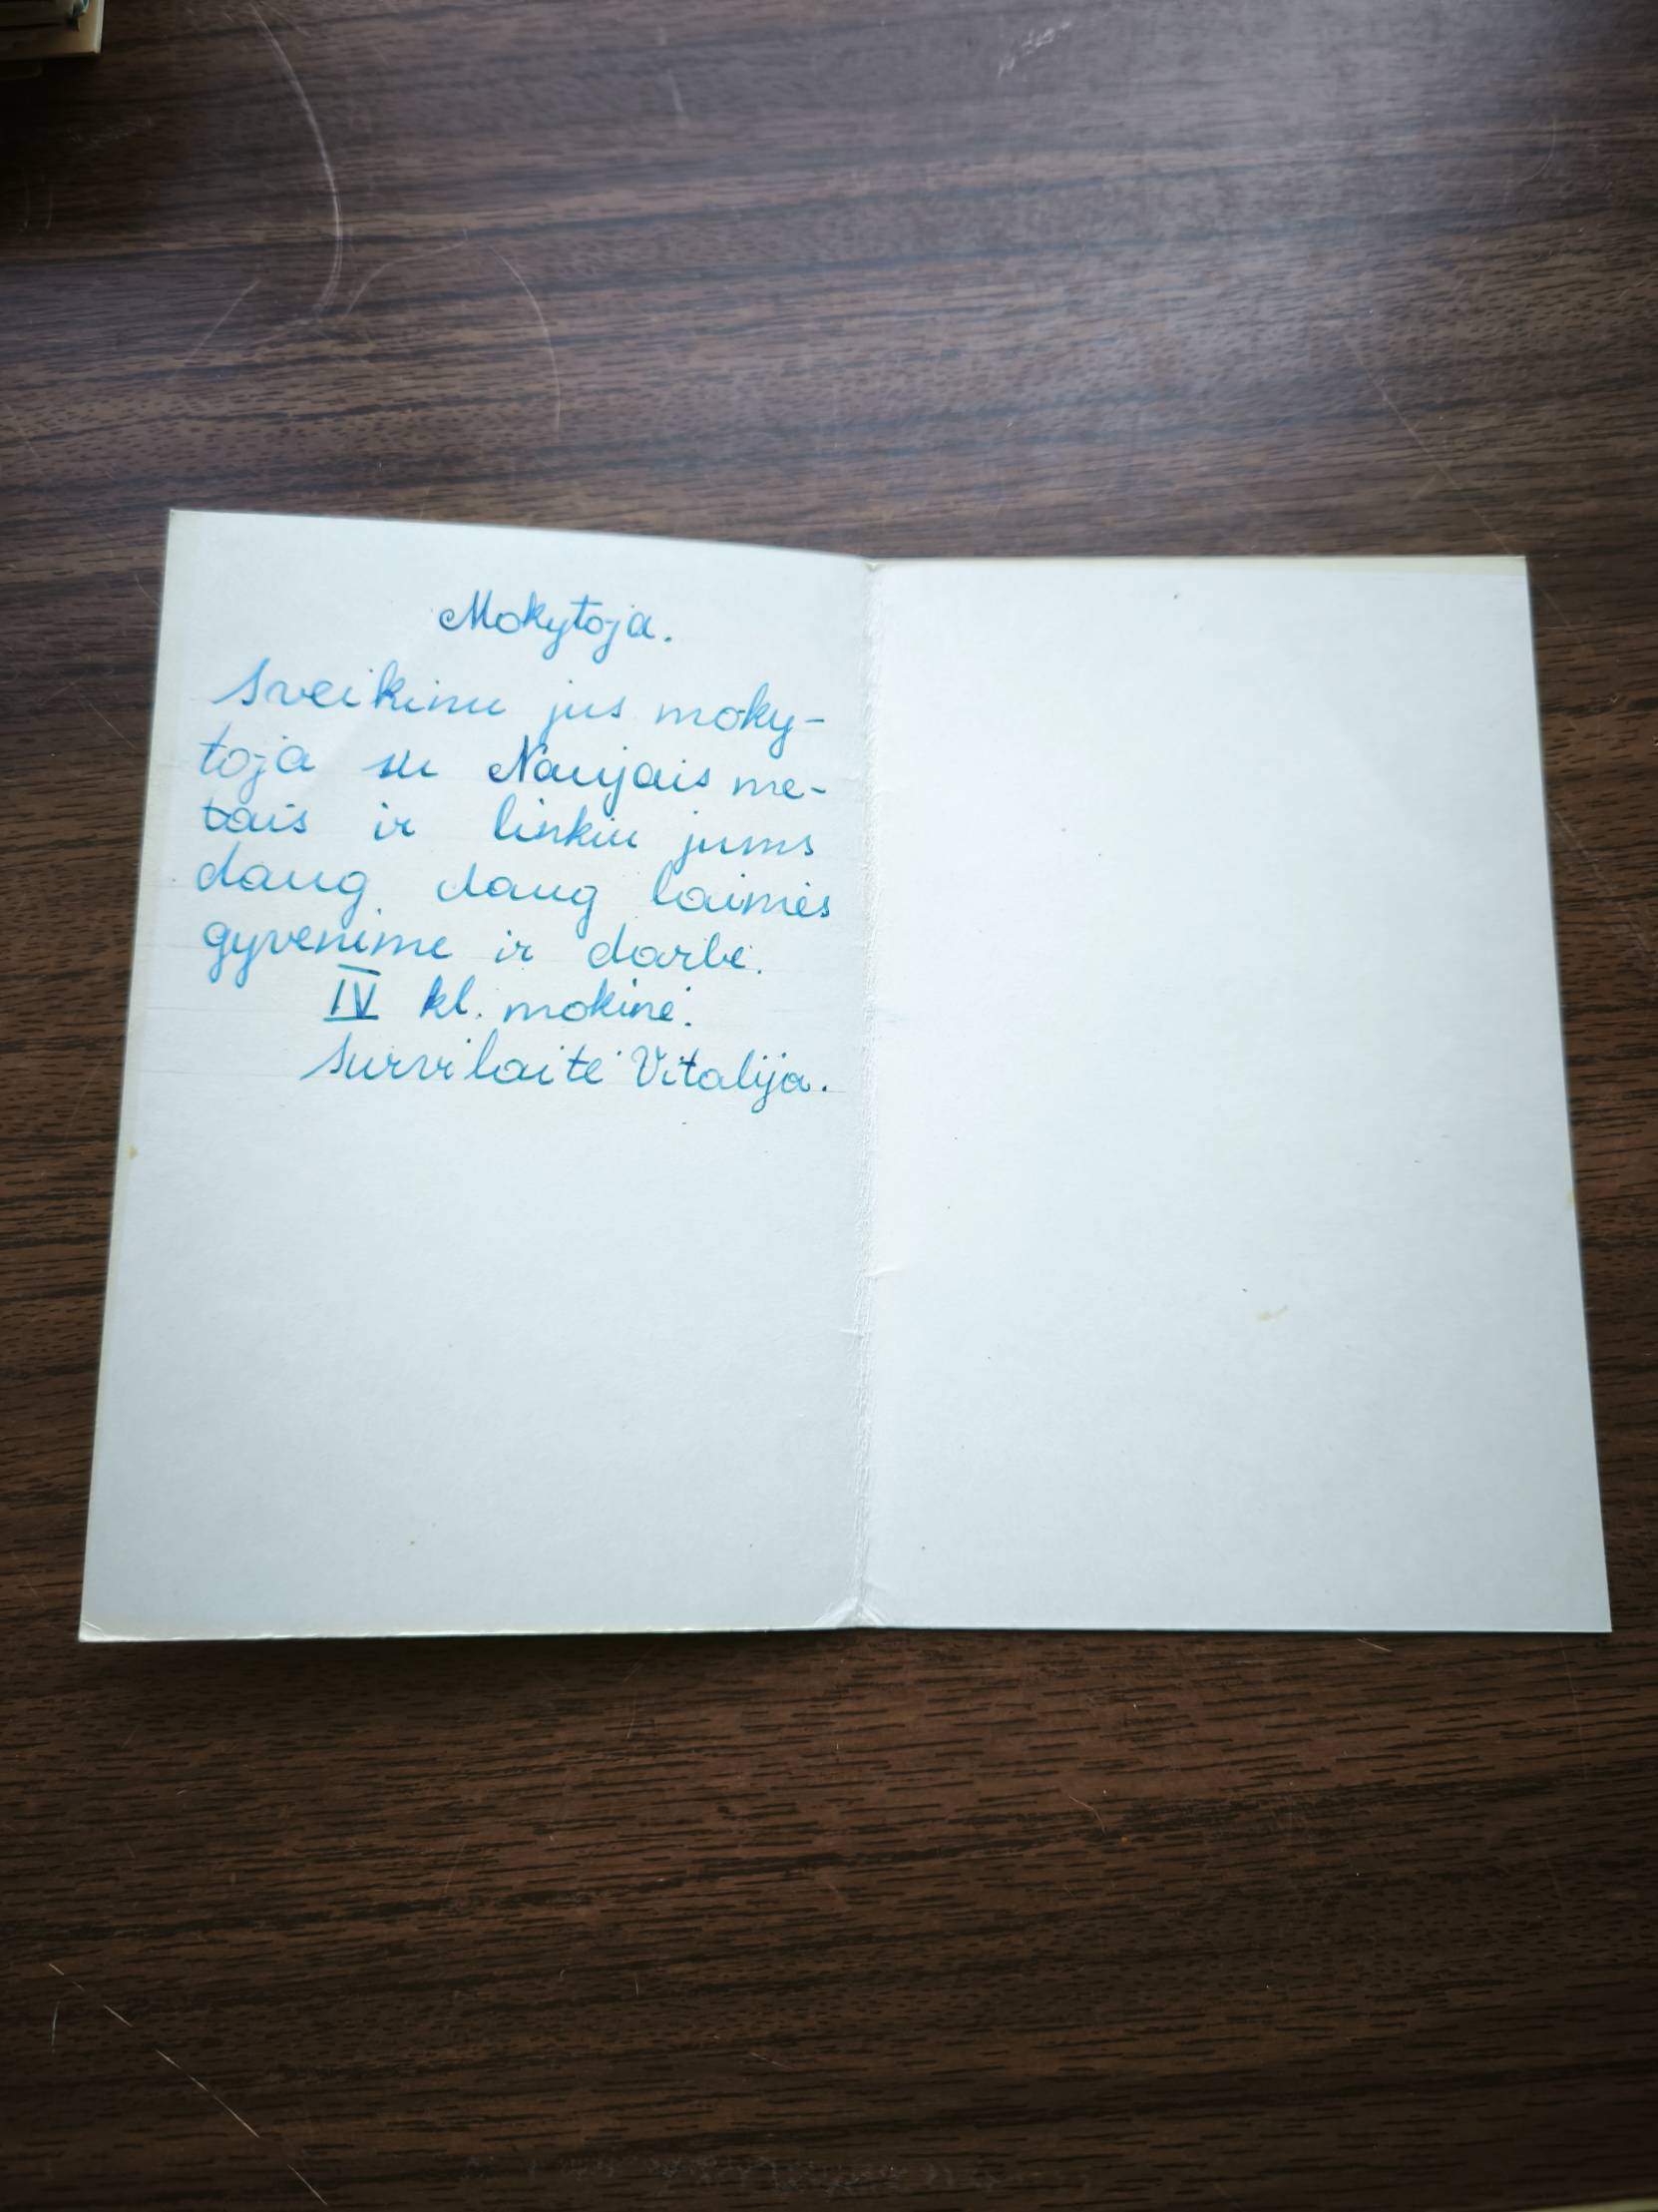 Mokytoja.
Sveikinu jus moky-
toja su Naujais me-
tais ir linkiu jums
daug daug laimės
gyvenime ir darbe.
IV kl. mokinė.
Survilaitė Vitalija.